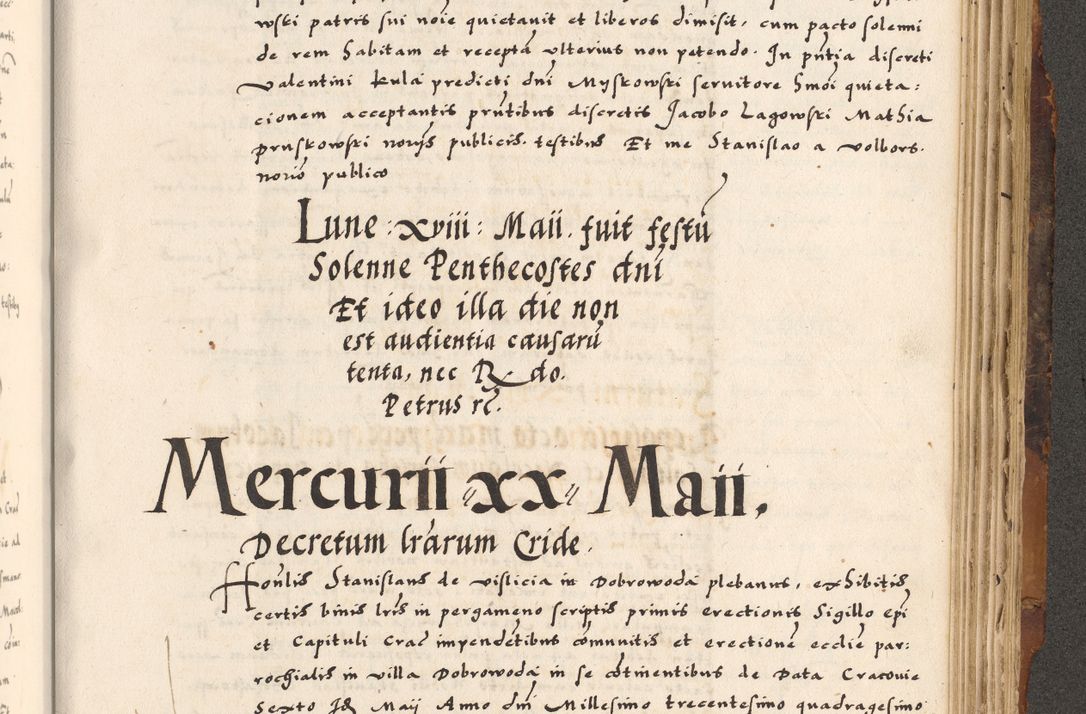 wski patris sui noīe quietavit et liberos dimisit, cum pacto solenni
de rem habitam et receptā ulterius non petendo. In pn̄tia discreti
Valentini Kula predicti dnī Myskowski servitore hmōi quieta:
cionem acceptantis pn̄tibus discretis Jacobo Lagowski Mathia
Pruskowski noriis publicis. testibus Et me Stanislao a Volbors.
norio publico
Lune : xviii : Maii . fuit festū
Solenne Penthecostes dnī
Et ideo illa die non
est audientia causarū
tenta, nec R do.
Petrus rc̄.
Mercurii xx Maii.
Decretum lrārum Cride.
Honlis Stanislaus de Visticia in Dobrowoda plebanus, exhibitis
certis binis lrīs in pergameno scriptis primis erectionis Sigillo epī
et Capituli Crac̄ impendētibus cōmunitis et erectionē ecclie par:
rochialis in villa Dobrowoda in se cōtinentibus de Data Cracovie
Sexto Maij Anno dnī Millesimo trecentesimo quadragesimo